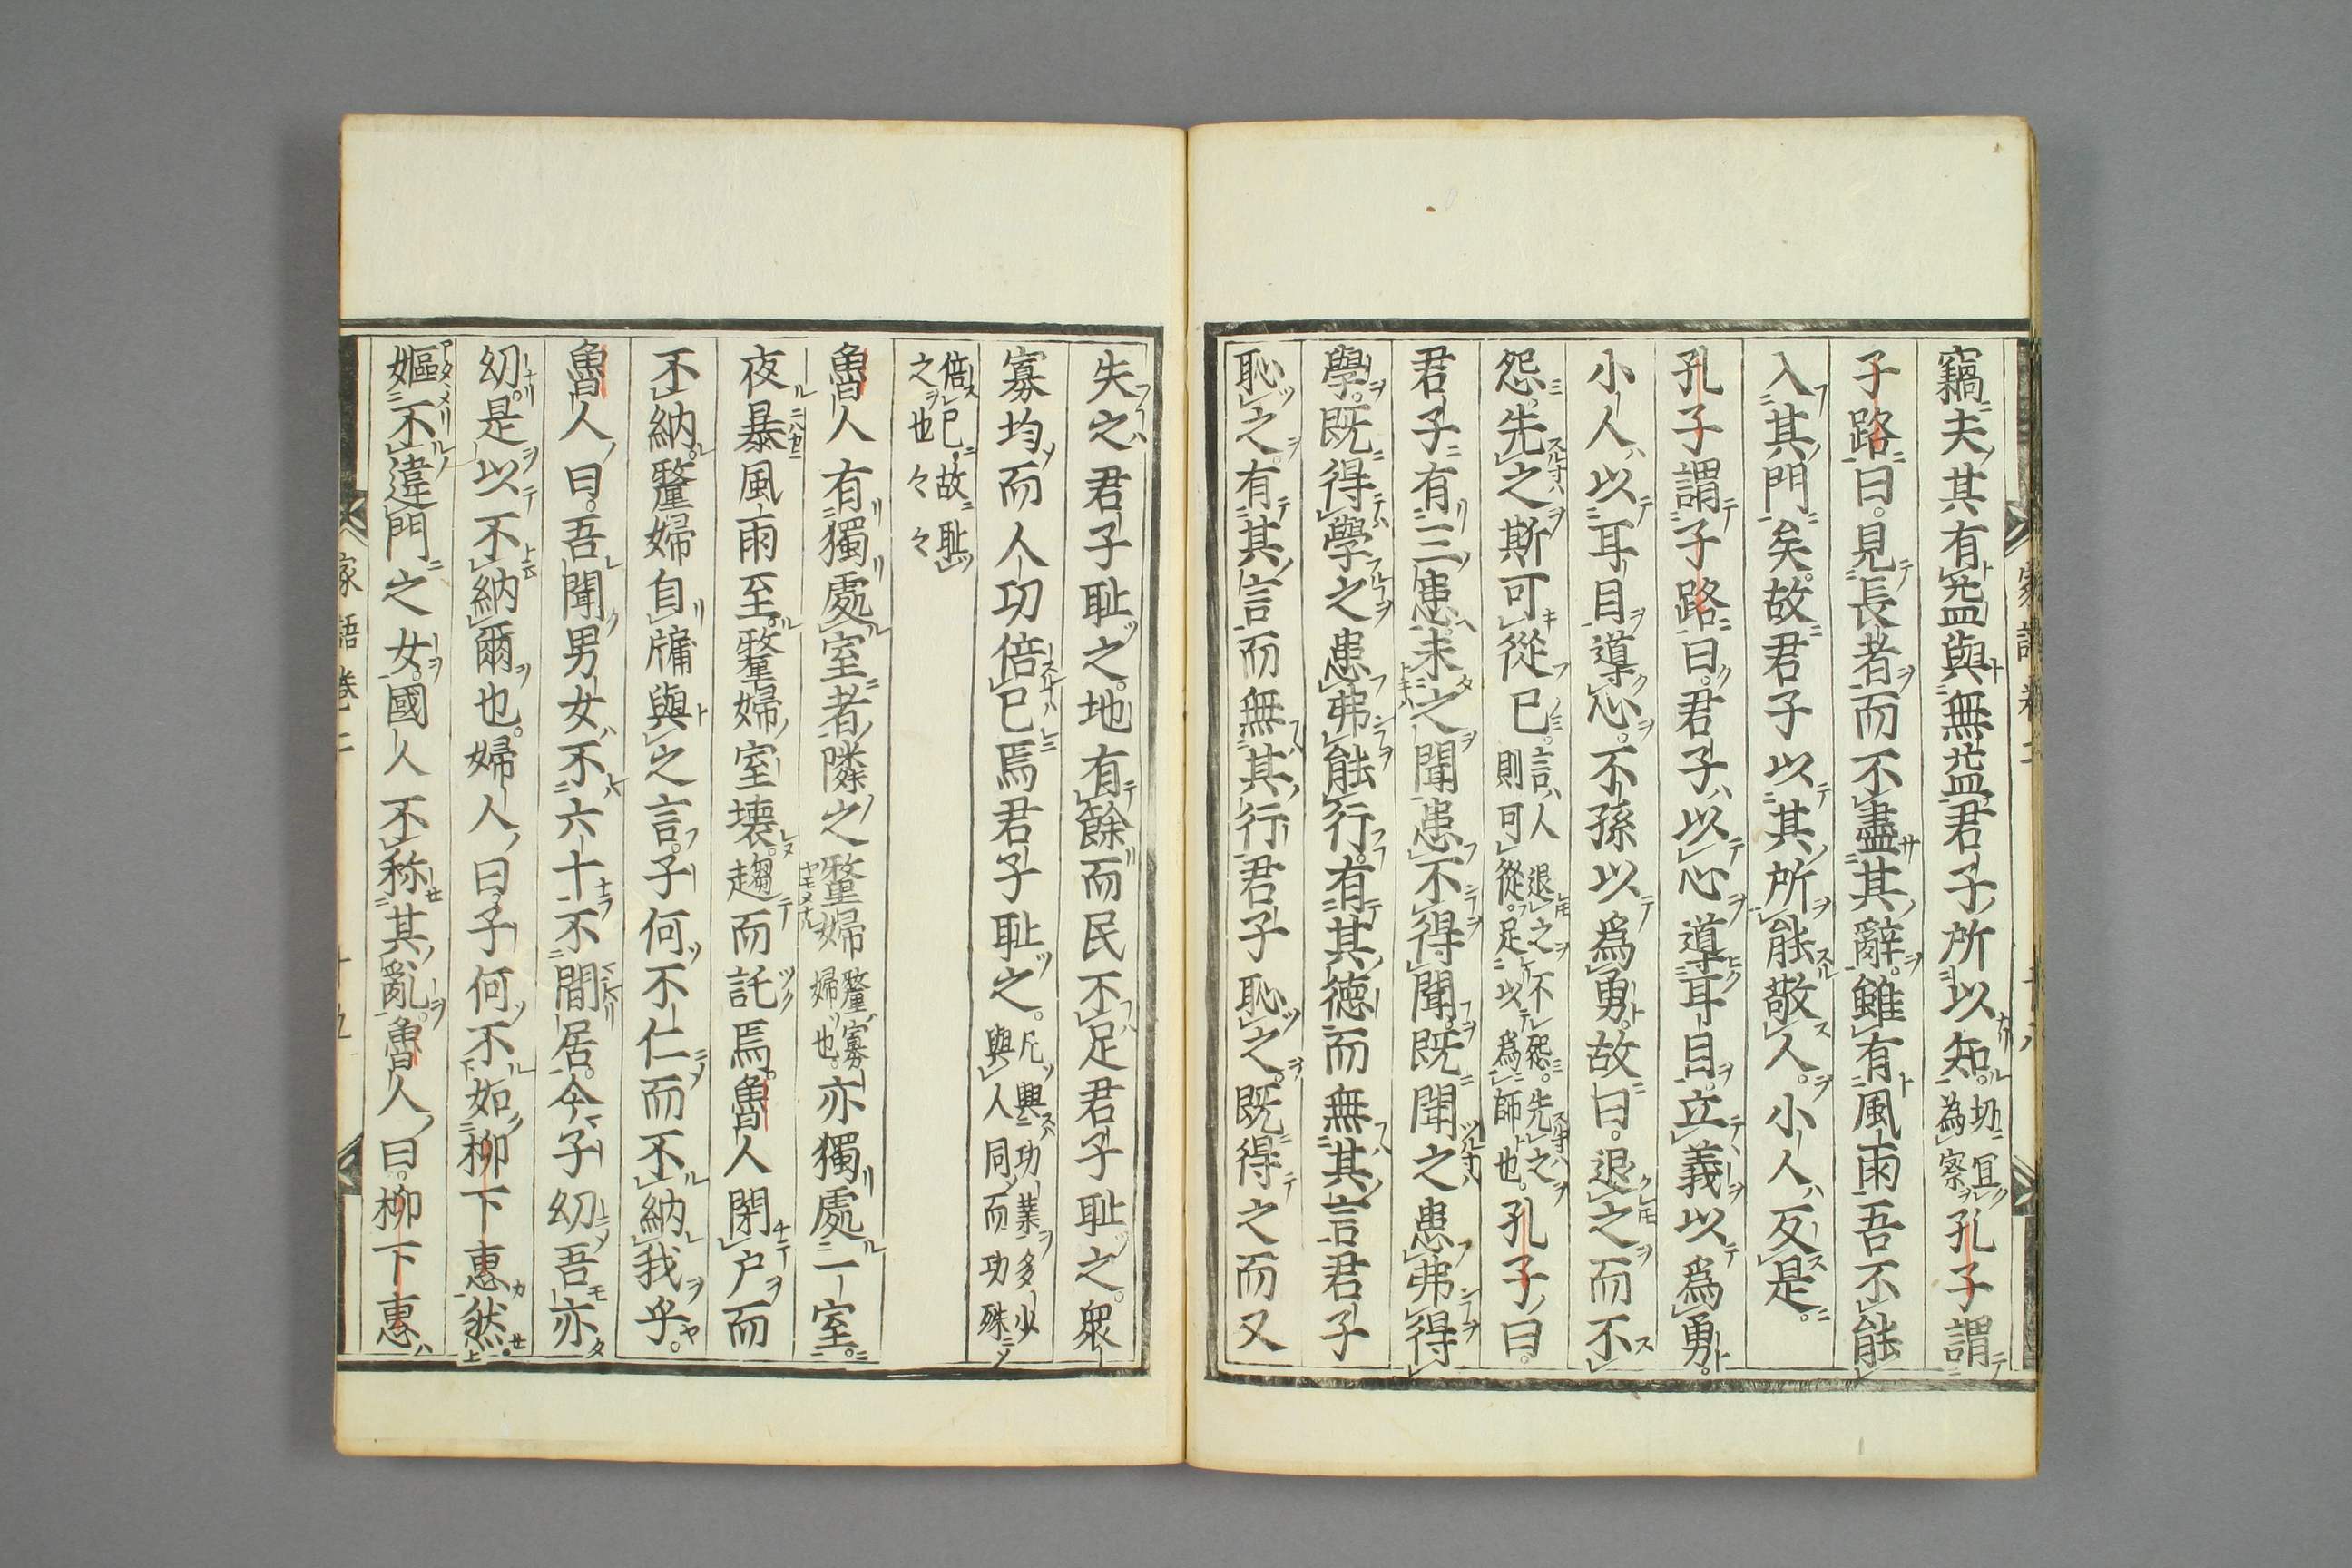 竊夫其有益與無益君子所以知切宜為察孔子謂
子路曰見長者而不盡其辭雖有風雨吾不能
入其門矣故君子以其所能敬人小人反是
孔子謂子路曰君子以心導耳目立義以爲勇
小人以耳目導心不孫以爲勇故曰退之而不
怨先之斯可從已言人退之不怨先之則可從足以爲師也孔子曰
君子有三患未之聞患不得聞既聞之患弗得
學既得學之患弗能行有其德而無其言君子
恥之有其言而無其行君子恥之既得之而又
失之君子恥之地有餘而民不足君子恥之衆
寡均而人功倍已焉君子恥之凡興功業多少與人同而功殊
倍已故恥之也々々
魯人有獨處室者隣之釐婦釐寡婦也亦獨處一室
夜暴風雨至釐婦室壊趨而託焉魯人閉戸而
不納釐婦自牖與之言子何不仁而不納我乎
魯人曰吾聞男女不六十不間居今子幼吾亦
幼是以不納爾也婦人曰子何不如柳下惠然
嫗不違門之女國人不称其亂魯人曰柳下惠
家語卷二